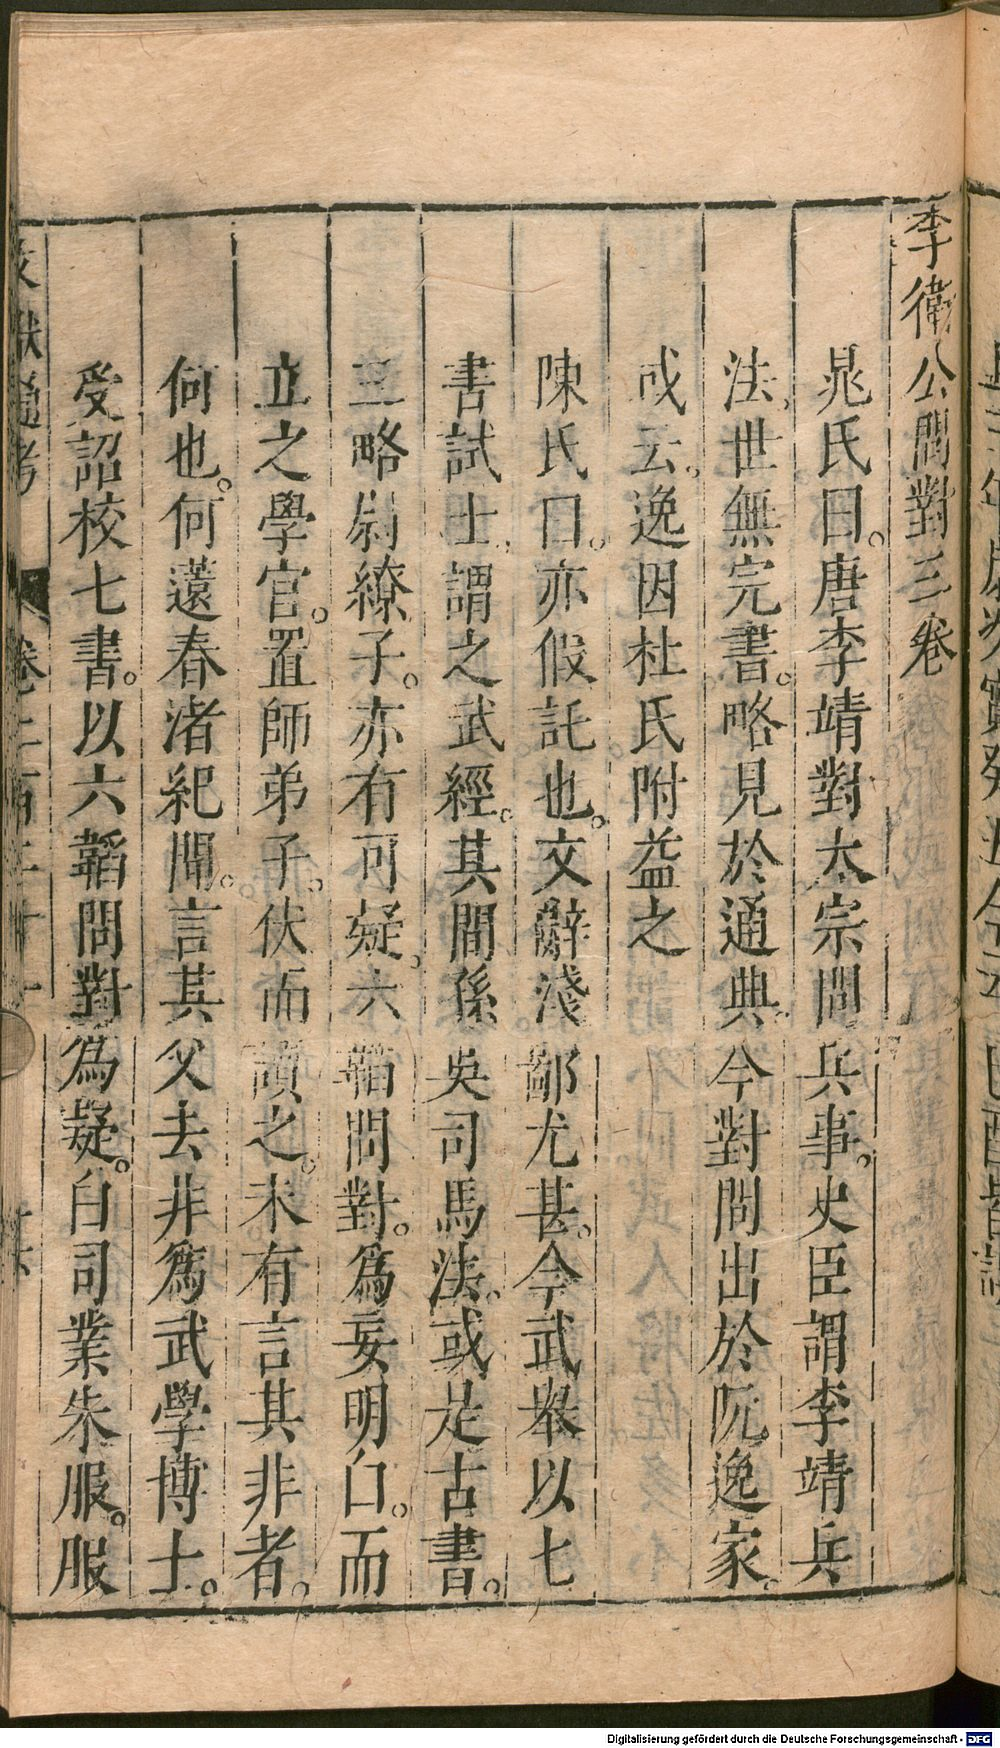 李衛公問對三卷
晁氏曰。唐李靖對太宗問兵事。史臣謂李靖兵
法，世無完書。略見於通典。今對問出於阮逸家。
或云。逸因杜氏附益之
陳氏曰。亦假託也。文辭淺鄙尤甚。今武舉以七
書試士，謂之武經。其間孫吳司馬法。或是古書。
三略尉繚子。亦有可疑。六韜問對。為妄明白。而
立之學官。置師弟子。伏而讀之。未有言其非者。
何也。何薳春渚紀聞。言其父去非爲武學博士。
受詔校七書。以六韜問對為疑。白司業朱服。服
文獻通考
卷二百二十一